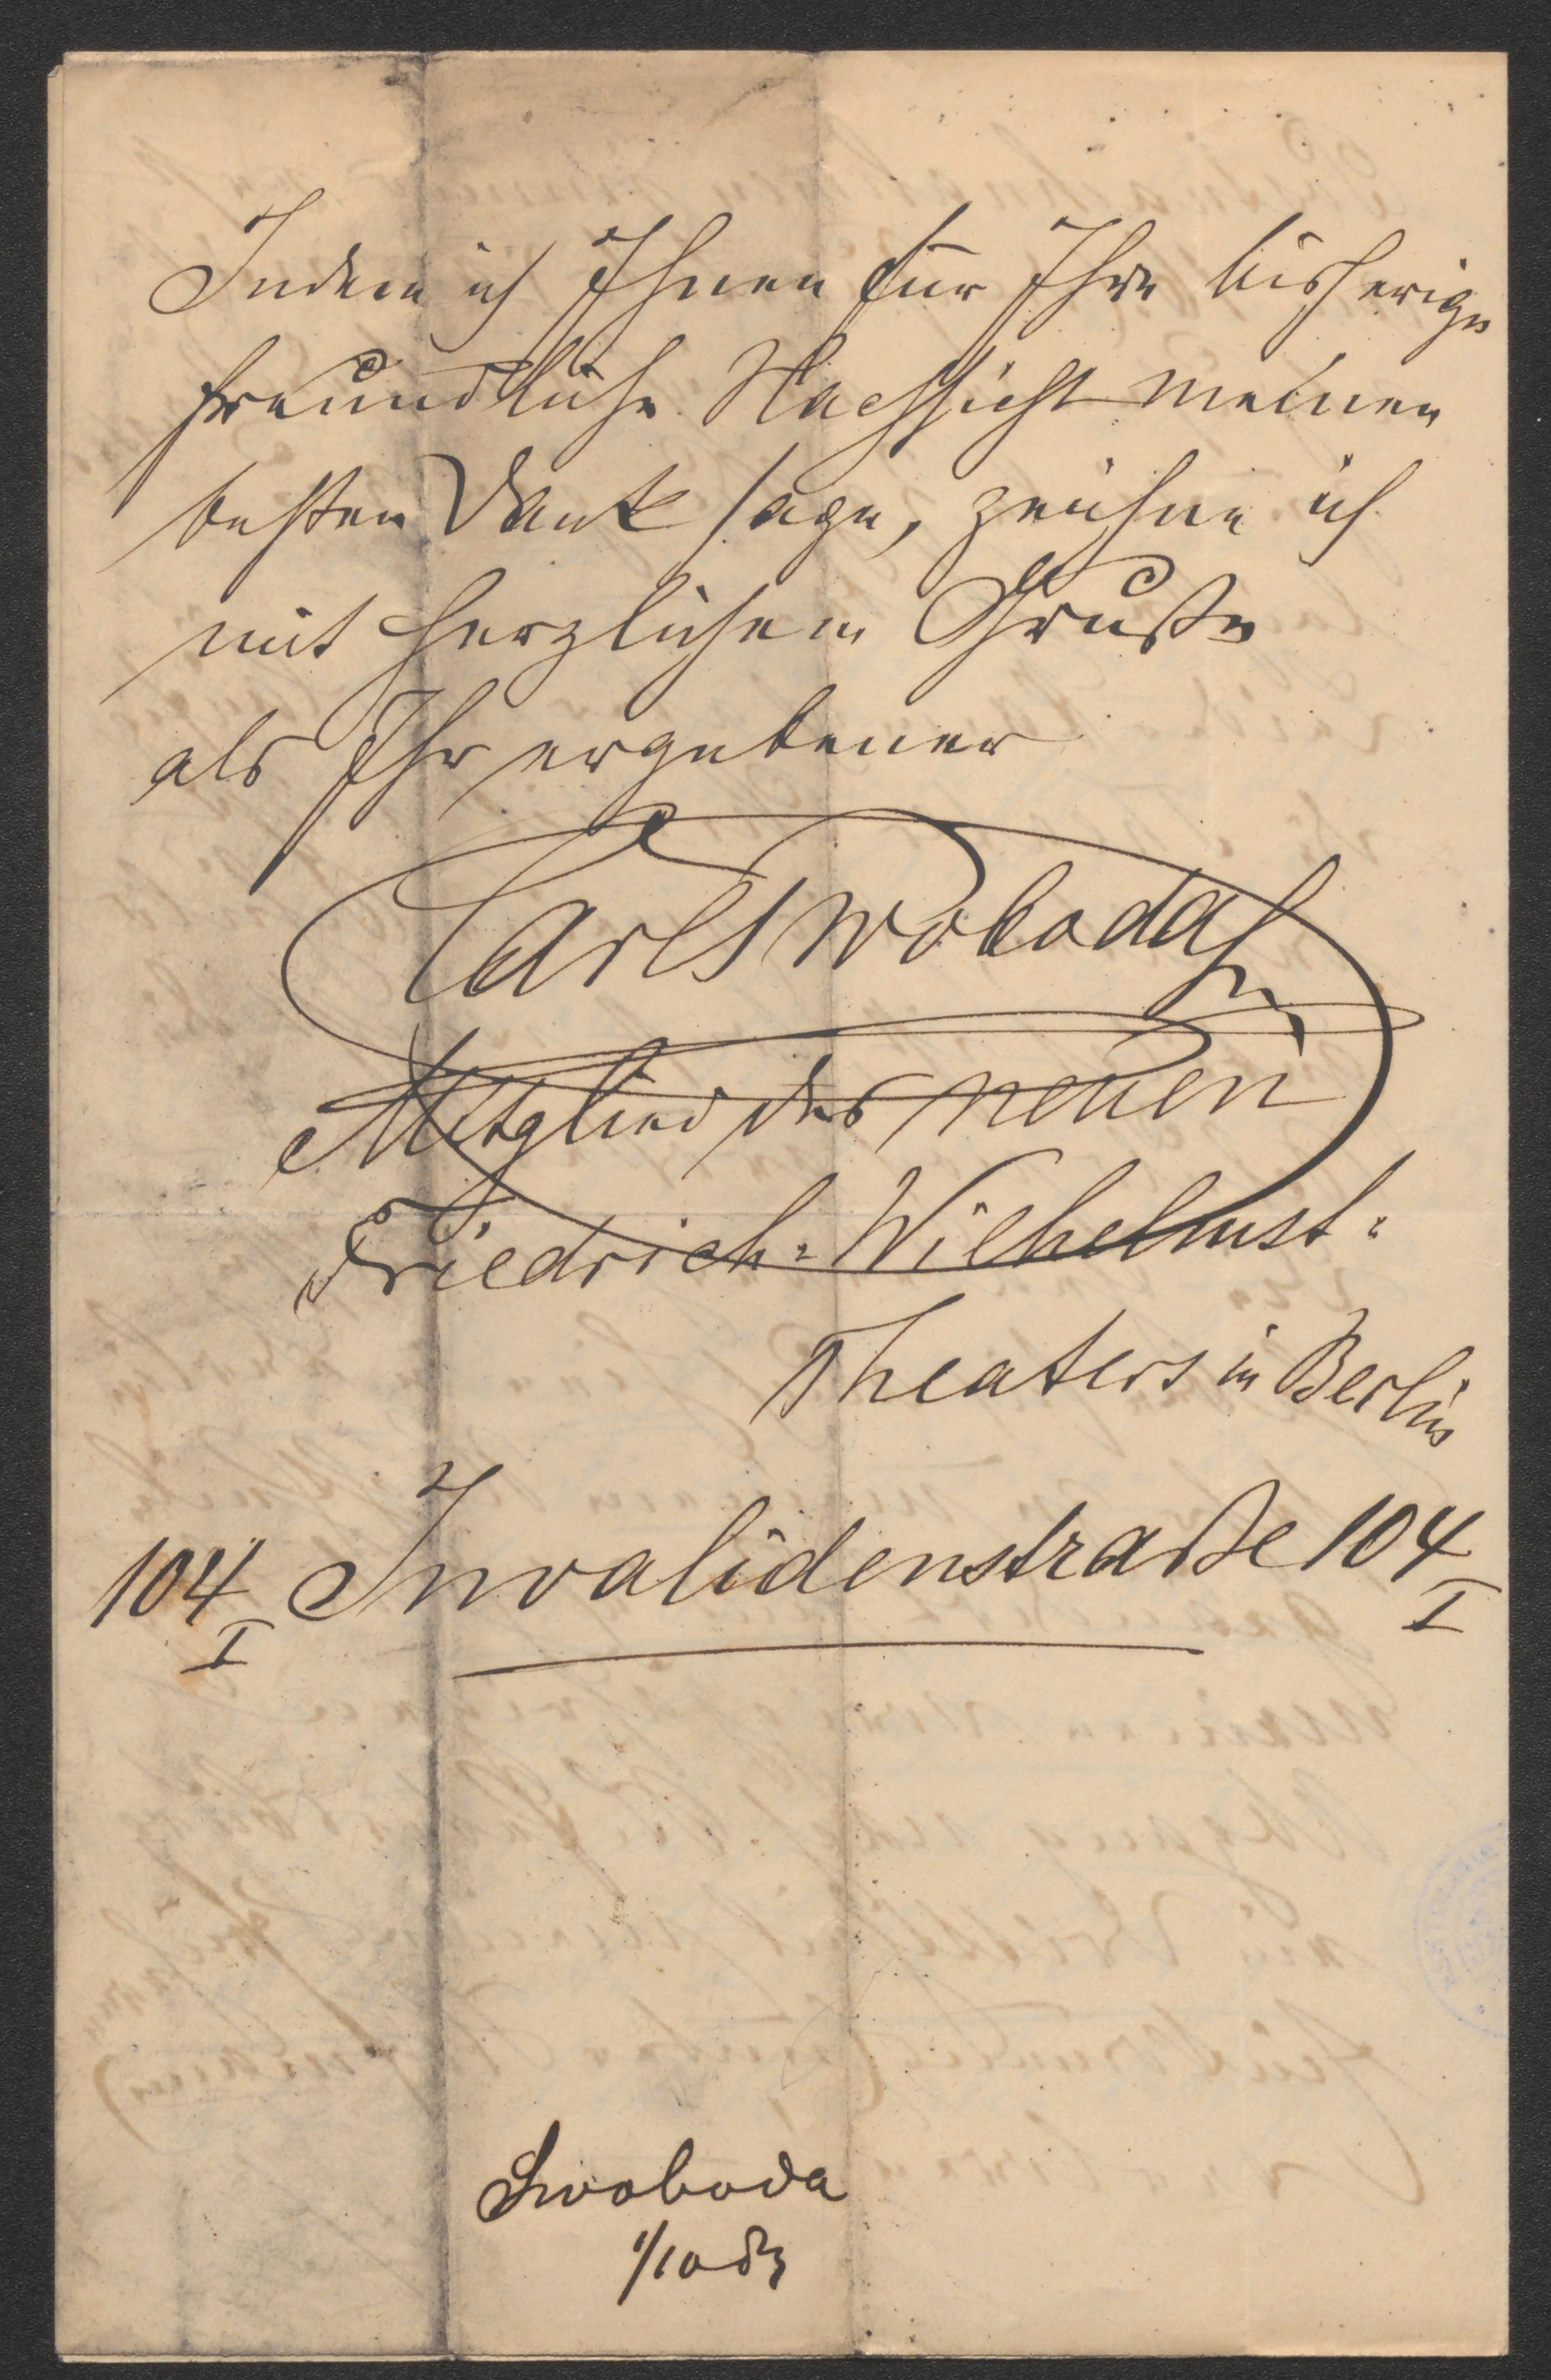 Indem ich Ihnen für Ihre bisherige
freundliche Nachsicht meinen
besten Dank sage, zeichne ich
mit herzlichem Gruße
als Ihr ergebener
Carl Swoboda
Mitglied des neuen
Friedrich-Wilhelmst-
Theaters in Berlin
104 I Invalidenstraße 104 I
Swoboda
1/10 83